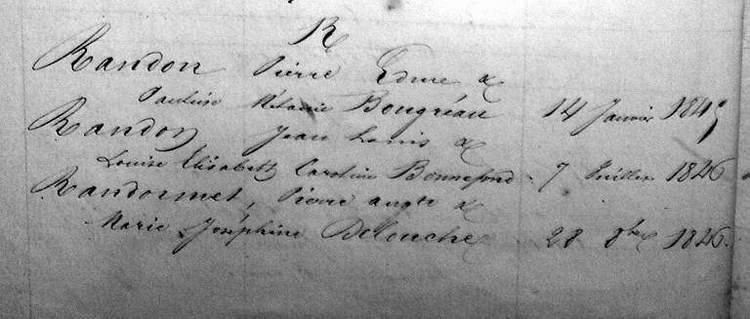 R
Randon Pierre Edme &
Pauline Mélanie Bougréau 14 Janvier 1845
Randon Jean Louis &
Louise Elisabeth Caroline Bonnefond 7 Juillet 1846
Randonnet, Pierre augte &
Marie Joséphine Delouche 28 8bre 1846.